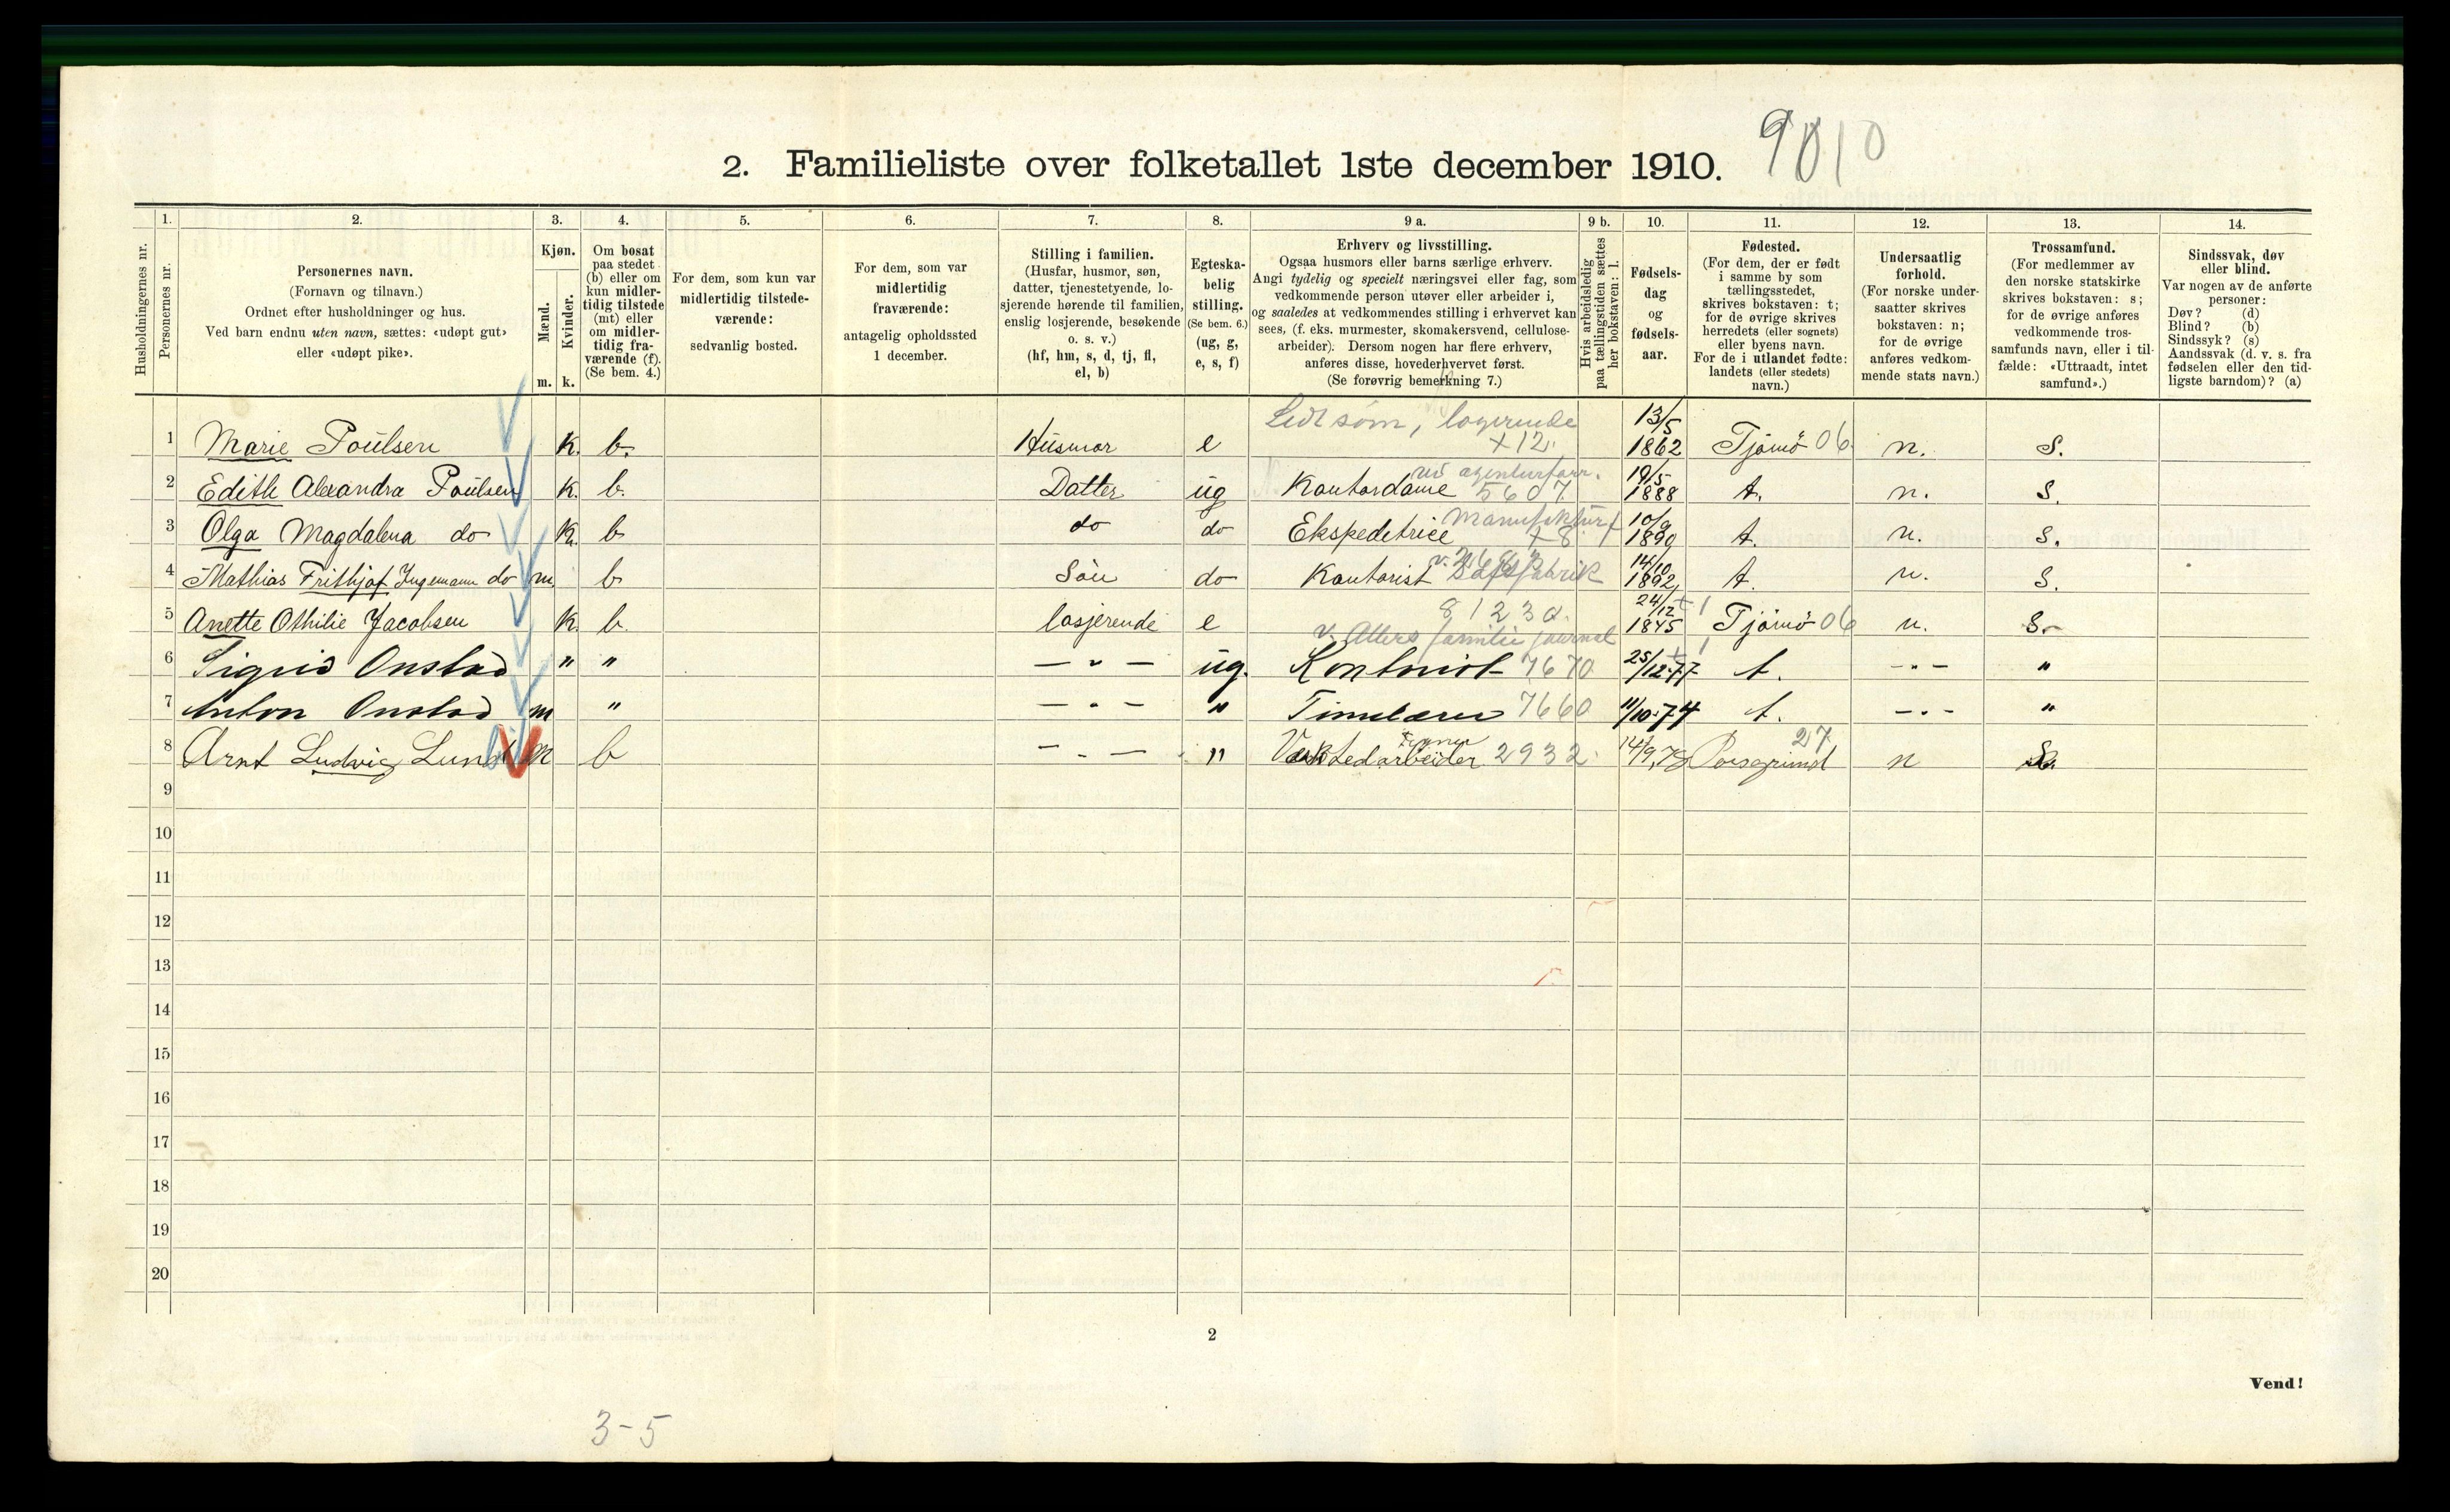 9010
2. Familieliste over folketallet 1ste december 1910.
Husholdningernes nr.
1.
Personernes nr.
2.
Personernes navn.
(Fornavn og tilnavn.)
Ordnet efter husholdninger og hus.
Ved barn endnu uten navn, sættes: «udøpt gut»
eller «udøpt pike».
3.
Kjøn.
Mænd.
Kvinder.
m. k.
4.
Om bosat
paa stedet
(b) eller om
kun midler-
tidig tilstede
(mt) eller
om midler-
tidig fra-
værende (f).
(Se bem. 4.)
5.
For dem, som kun var
midlertidig tilstede-
værende:
sedvanlig bosted.
6.
For dem, som var
midlertidig
fraværende:
antagelig opholdssted
1 december.
7.
Stilling i familien.
(Husfar, husmor, søn,
datter, tjenestetyende, lo-
sjerende hørende til familien,
enslig losjerende, besøkende
o. s. v.)
(hf, hm, s, d, tj, fl,
el, b)
8.
Egteska-
belig
stilling.
(Se bem. 6.)
(ug, g,
e, s, f)
9 a.
Erhverv og livsstilling.
Ogsaa husmors eller barns særlige erhverv.
Angi tydelig og specielt næringsvei eller fag, som
vedkommende person utøver eller arbeider i,
og saaledes at vedkommendes stilling i erhvervet kan
sees, (f. eks. murmester, skomakersvend, cellulose-
arbeider). Dersom nogen har flere erhverv,
anføres disse, hovederhvervet først.
(Se forøvrig bemerkning 7.)
9 b.
Hvis arbeidsledig
paa tællingstiden sættes
her bokstaven: l.
10.
Fødsels-
dag
og
fødsels-
aar.
11.
Fødested.
(For dem, der er født
i samme by som
tællingsstedet,
skrives bokstaven: t;
for de øvrige skrives
herredets (eller sognets)
eller byens navn.
For de i utlandet fødte:
landets (eller stedets)
navn.)
12.
Undersaatlig
forhold.
(For norske under-
saatter skrives
bokstaven: n;
for de øvrige
anføres vedkom-
mende stats navn.)
13.
Trossamfund.
(For medlemmer av
den norske statskirke
skrives bokstaven: s;
for de øvrige anføres
vedkommende tros-
samfunds navn, eller i til-
fælde: «Uttraadt, intet
samfund».)
14.
Sindssvak, døv
eller blind.
Var nogen av de anførte
personer:
Døv? (d)
Blind? (b)
Sindssyk? (s)
Aandssvak (d. v. s. fra
fødselen eller den tid-
ligste barndom)? (a)
1 Marie Poulsen K. b. Husmor e søm, logerende +12 13/5 1862 Tjømø 06 n. S.
2 Edith Alexandra Poulsen K. b. Datter ug Kontordame agenturforr. 5607 19/5 1888 t. n. S.
3 Olga Magdalena do K. b do do Ekspeditrice Manufaktur +8 10/9 1890 t. n. S.
4 Mathias Frithjof Ingemann do m. b Sön do Kontorist v. fabrik 14/10 1892 t. n. S.
5 Anette Othilie Jacobsen K. b. losjerende e 8123 24/12 1845 Tjømø 06 n. S.
6 Sigrid Onstad " " — " — ug. v. Allers familie journal Kontorist 7670 25/12-77 t. — " — "
7 Anton Onstad m " — " — " Timelærer 7660 11/10-74 t. — " — "
8 Arnt Ludvig Lund m b — " — " Værkstedarbeider 2932 14/9, 78 Porsgrund 27 n S.
9
10
11
12
13
14
15
16
17
18
19
20
2
Vend!
3-5